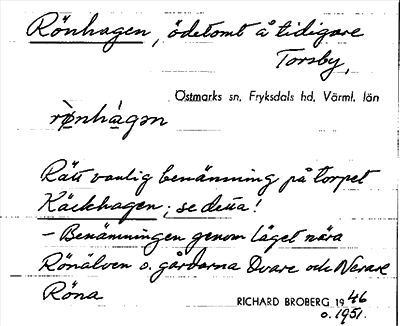 Rönhagen, ödetomt å tidigare
Torsby,
Östmarks sn, Fryksdals hd, Värml. län
rø̀nhàgən
Rätt vanlig benämning på torpet
Käckhagen; se detta!
– Benämningen genom läget nära
Rönälven o. gårdarna Övare och Nerare
Röna
RICHARD BROBERG 1946
o. 1951.